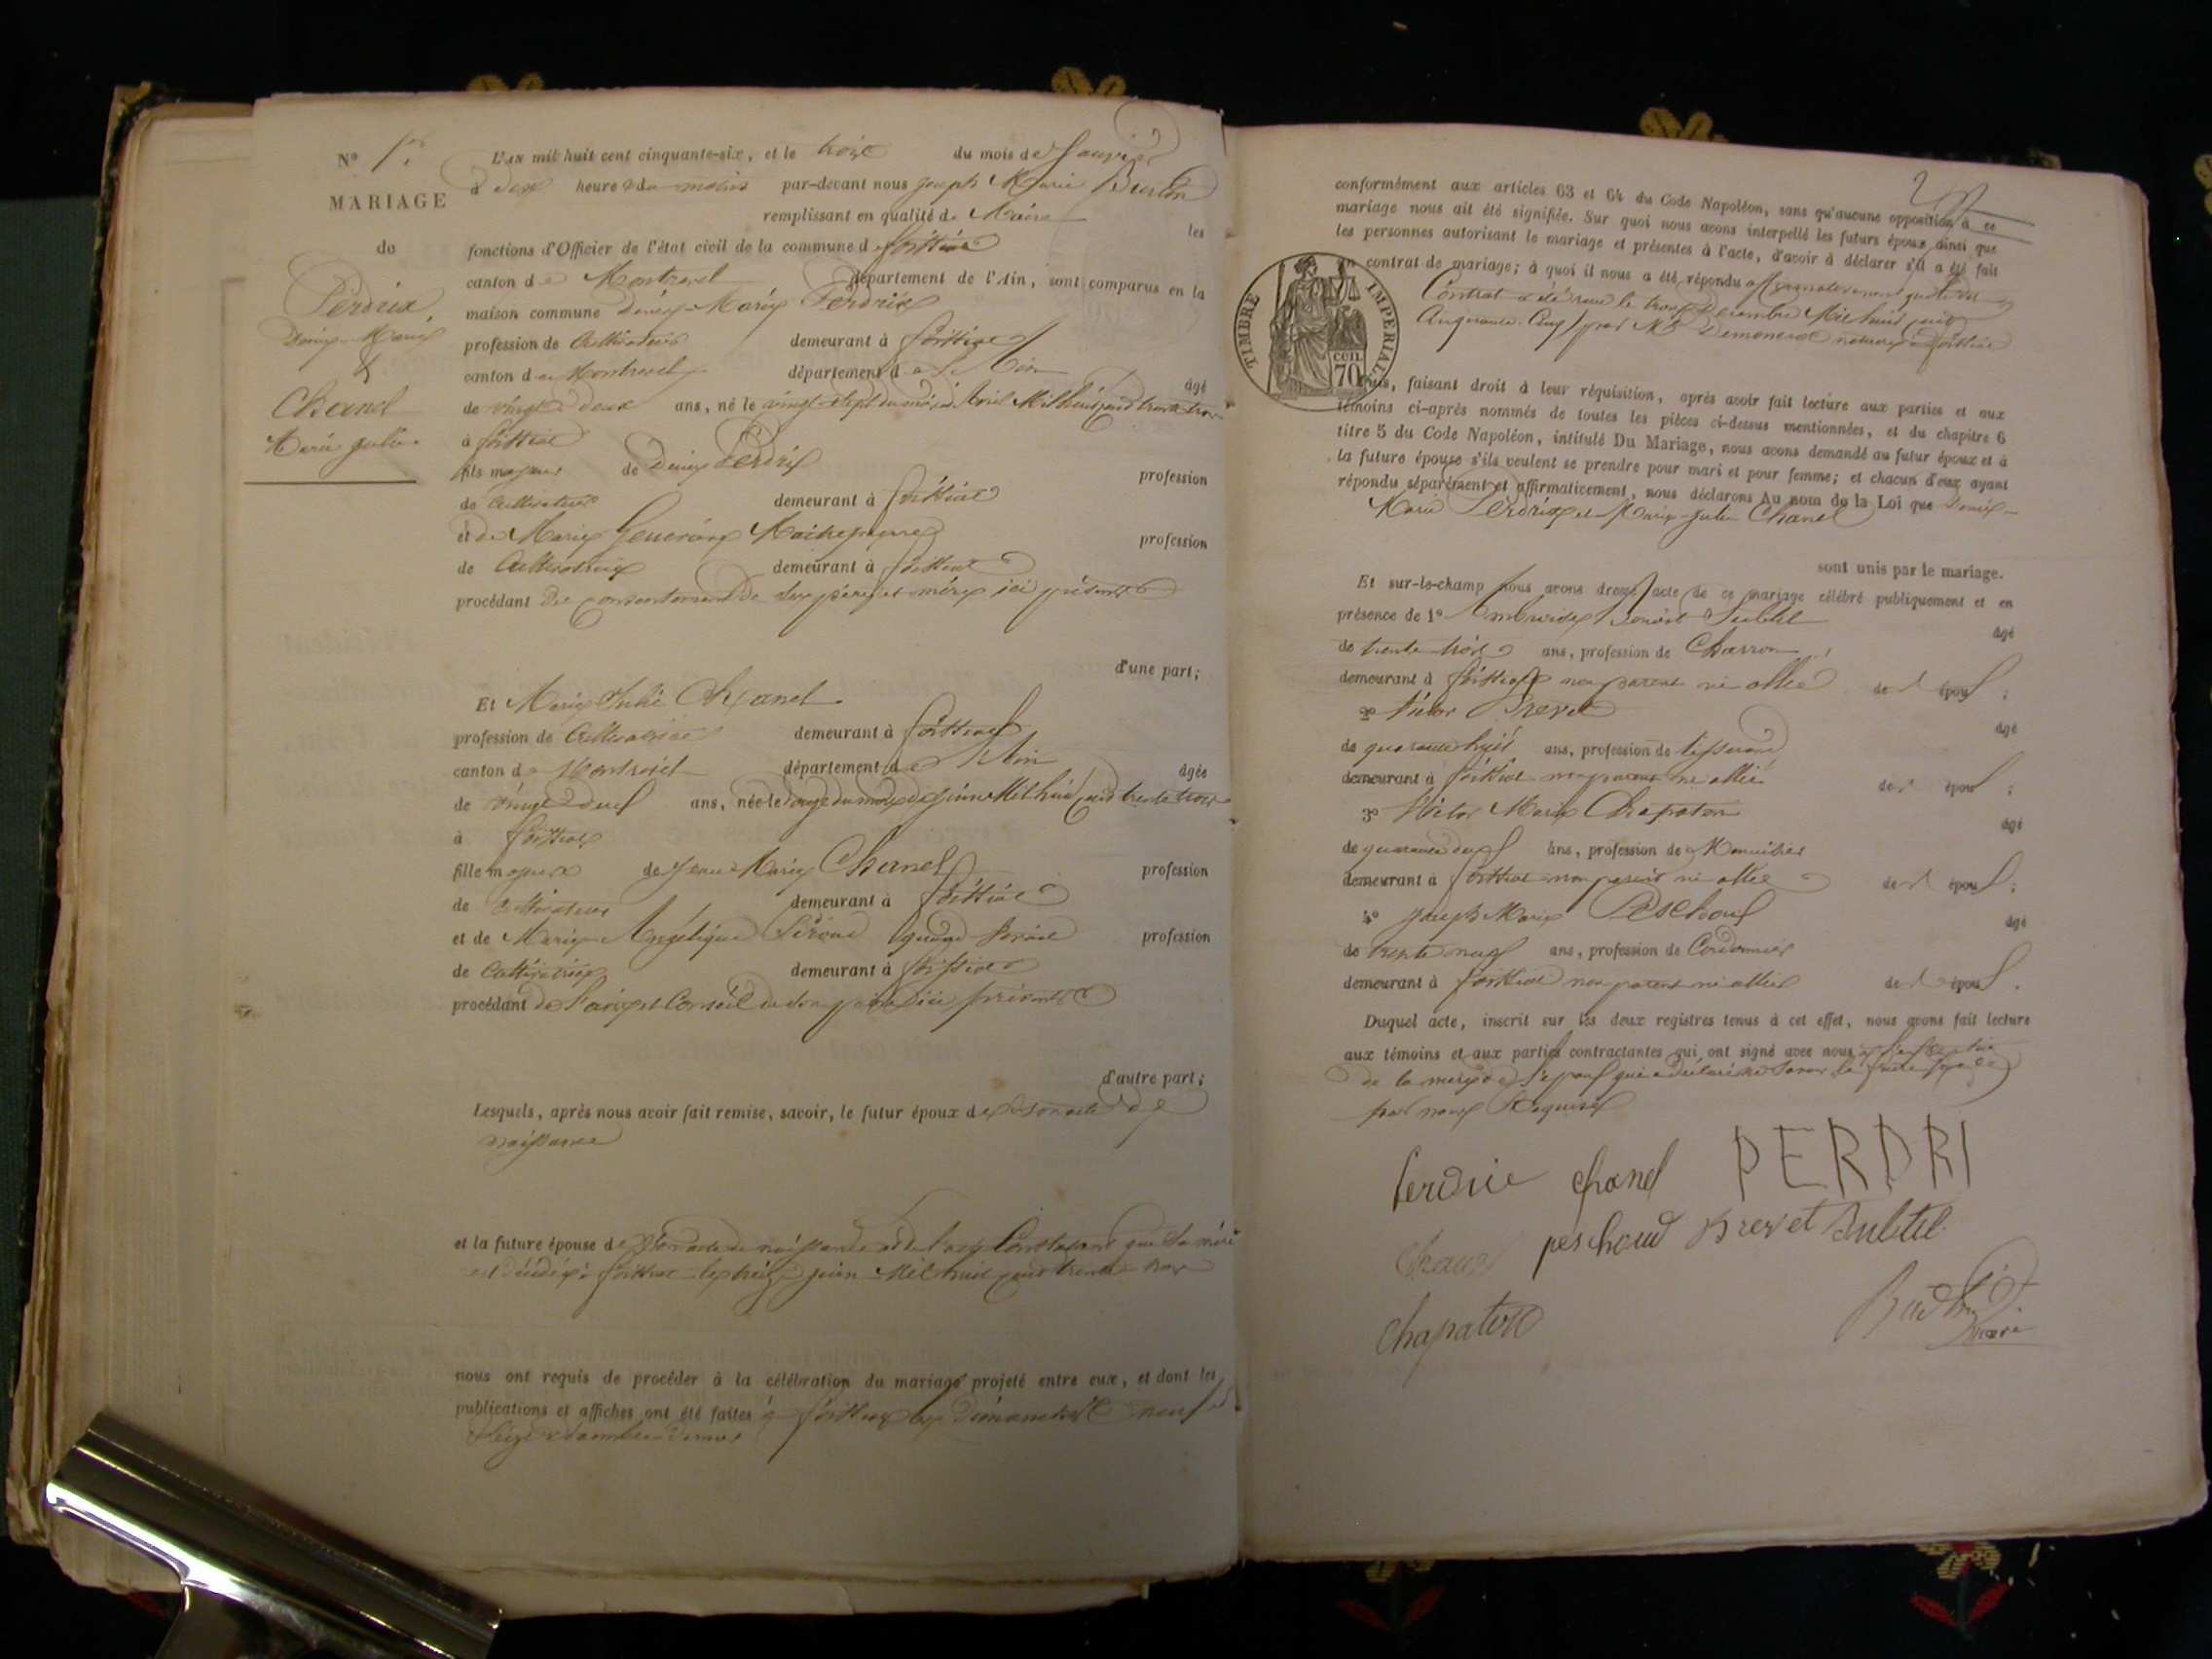 N° 1er
MARIAGE
de
Perdrix
Denis-Marie
&
Chanel
Marie Julie
L'AN mil huit cent cinquante-six, et le trois du mois de Janvier
à dix heure du matin par-devant nous Joseph Marie
remplissant en qualité de Maire les
fonctions d'Officier de l'état civil de la commune d
canton de Montrevel département de l'Ain, sont comparus en la
maison commune Denis-Marie Perdrix
profession de Cultivateur demeurant à
canton de Montrevel département de l'Ain âgé
de vingt deux ans, né le vingt-sept du mois d'Avril Mil huit cent trente trois
à
fils majeur de Denis Perdrix profession
de Cultivateur demeurant à
et de Marie profession
de Cultivatrice demeurant à
procédant du consentement de ses père et mère ici présents
d'une part;
Et Marie Julie Chanel
profession de Cultivatrice demeurant à
canton de Montrevel département de l'Ain âgée
de vingt deux ans, née le du mois de Juin Mil huit cent trente trois
à
fille majeure de Jean Marie Chanel profession
de Cultivateur demeurant à
et de Marie Angélique profession
de Cultivatrice demeurant à
procédant de l'avis et Conseil de son père ici présent
d'autre part;
Lesquels, après nous avoir fait remise, savoir, le futur époux de son acte de
naissance
et la future épouse de son acte de naissance et de l'acte Constatant que sa mère
est décédée à le treize juin Mil huit cent trente trois
nous ont requis de procéder à la célébration du mariage projeté entre eux, et dont les
publications et affiches ont été faites à les Dimanches neuf et
seize décembre dernier
conformément aux articles 63 et 64 du Code Napoléon, sans qu'aucune opposition à ce
mariage nous ait été signifiée. Sur quoi nous avons interpellé les futurs époux ainsi que
les personnes autorisant le mariage et présentes à l'acte, d'avoir à déclarer s'il a été fait
un contrat de mariage; à quoi il nous a été répondu affirmativement
Contrat a été reçu le trente Décembre Mil huit cent
Cinquante Cinq par Me notaire à
TIMBRE IMPERIAL
cen. 70
Puis, faisant droit à leur réquisition, après avoir fait lecture aux parties et aux
témoins ci-après nommés de toutes les pièces ci-dessus mentionnées, et du chapitre 6
titre 5 du Code Napoléon, intitulé Du Mariage, nous avons demandé au futur époux et à
la future épouse s'ils veulent se prendre pour mari et pour femme; et chacun d'eux ayant
répondu séparément et affirmativement, nous déclarons Au nom de la Loi que Denis-
Marie Perdrix et Marie-Julie Chanel
sont unis par le mariage.
Et sur-le-champ nous avons dressé acte de ce mariage célébré publiquement et en
présence de 1° Benoit Subtil âgé
de trente trois ans, profession de Charron
demeurant à non parent ni allié des époux;
2° Victor Brevet âgé
de quarante huit ans, profession de tisserand
demeurant à non parent ni allié des époux;
3° Victor Marie Chapaton âgé
de quarante deux ans, profession de Menuisier
demeurant à non parent ni allié des époux;
4° Joseph Marie Peschoux âgé
de trente neuf ans, profession de Cordonnier
demeurant à non parent ni allié des époux.
Duquel acte, inscrit sur les deux registres tenus à cet effet, nous avons fait lecture
aux témoins et aux parties contractantes qui ont signé avec nous
de la mère de l'époux qui a déclaré ne savoir le faire
par nous Requise
Perdrie Chanel PERDRI
peschoud Brevet Subtil
Chapaton
maire